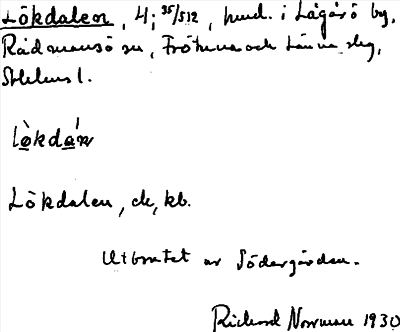 Lökdalen, 4; 35/512, hmd. i Lågarö by,
Rådmansö sn, Frötuna och Länna slg,
Sthlms l.
lòkdán
Lökdalen, ck, kb.
Utbrutet av Södergården.
Richard Norrman 1930